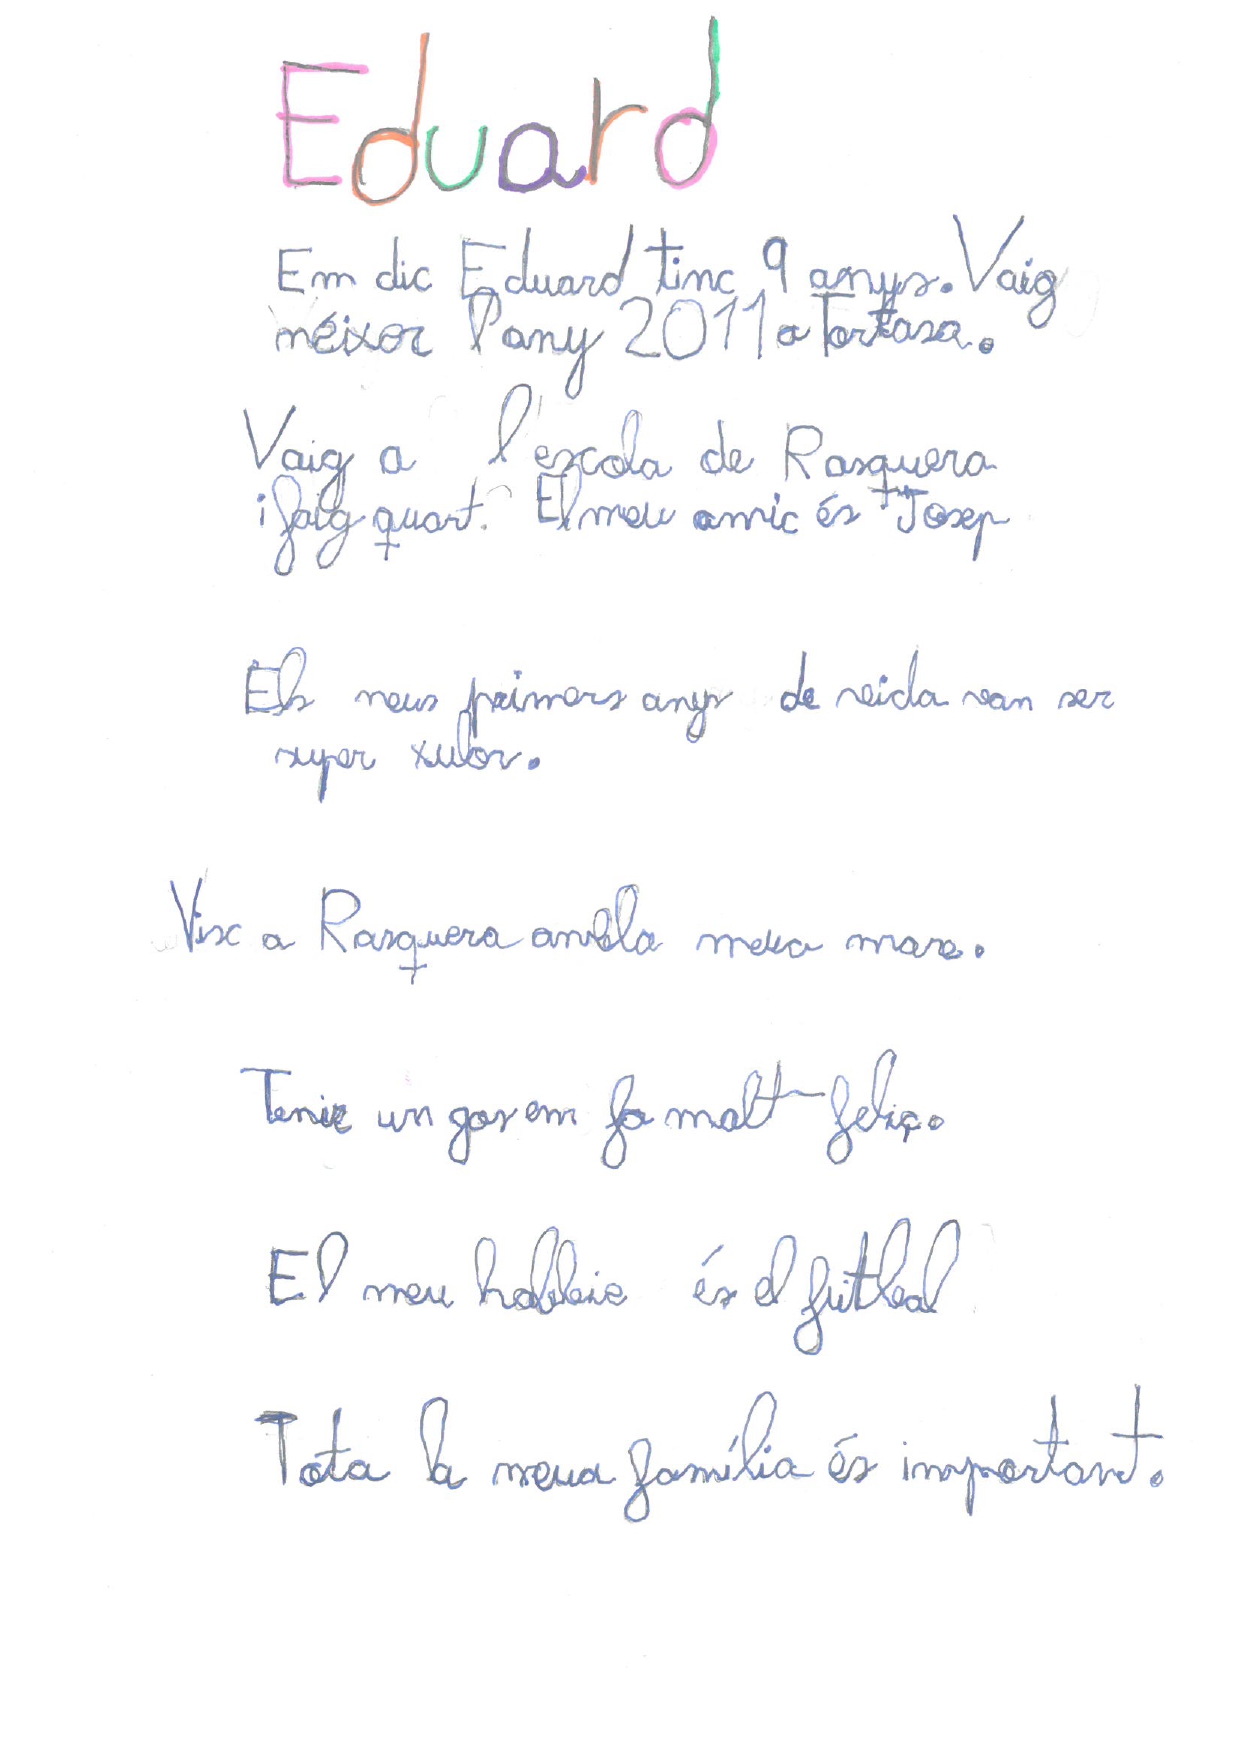 Eduard
Em dic Eduard tinc 9 anys. Vaig
néixer l'any 2011 a Tortosa.
Vaig a l'escola de Rasquera
i faig quart. El meu amic és Josep
Els meus primers anys de veida van ser
super xulos.
Visc a Rasquera amb la meua mare.
Tenir un gos em fa molt feliç.
El meu hobbie és el futbol
Tota la meua família és important.